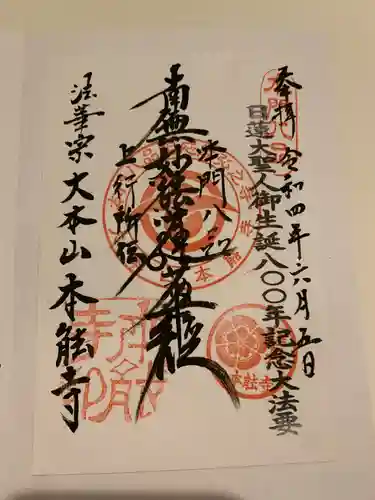 奉拝 令和四年六月五日
日蓮大聖人御生誕八〇〇年記念大法要
本門八品
南無妙法蓮華経
上行所伝
法華宗大本山本能寺
本能寺